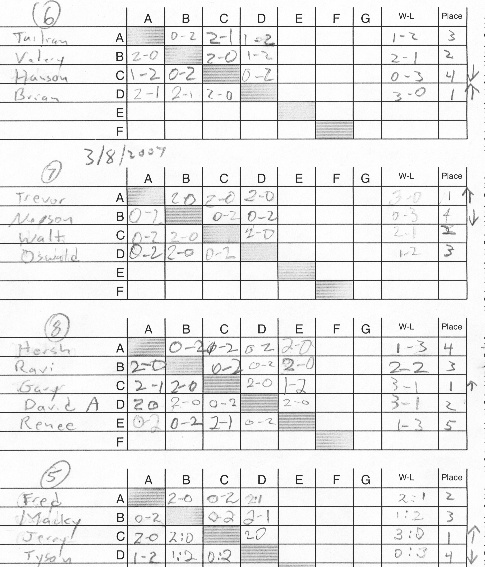 6 A B C D E F G W-L Place
A 0-2 2-1 1-2 1-2 3
Valery B 2-0 2-0 1-2 2-1 2
Hanson C 1-2 0-2 0-2 0-3 4 ↓
Brian D 2-1 2-1 2-0 3-0 1 ↑
E
F
3/8/2009
7 A B C D E F G W-L Place
Trevor A 2 0 2-0 2-0 3-0 1 ↑
B 0-2 0-2 0-2 0-3 4 ↓
Walt C 0-2 2-0 2-0 2-1 2
Oswald D 0-2 2-0 0-2 1-2 3
E
F
8 A B C D E F G W-L Place
Hersh A 0-2 0-2 0-2 2-0 1-3 4
Ravi B 2-0 0-2 0-2 2-0 2-2 3
Gary C 2-1 2-0 2-0 1-2 3-1 1 ↑
David A D 2 0 2-0 0-2 2-0 3-1 2
Renee E 0-2 0-2 2-1 0-2 1-3 5
F
5 A B C D E F G W-L Place
Fred A 2-0 0-2 2:1 2:1 2
Macky B 0-2 0-2 2-1 1:2 3
Jerry C 2-0 2:0 2 0 3:0 1 ↑
Tyson D 1-2 1:2 0:2 0:3 4 ↓